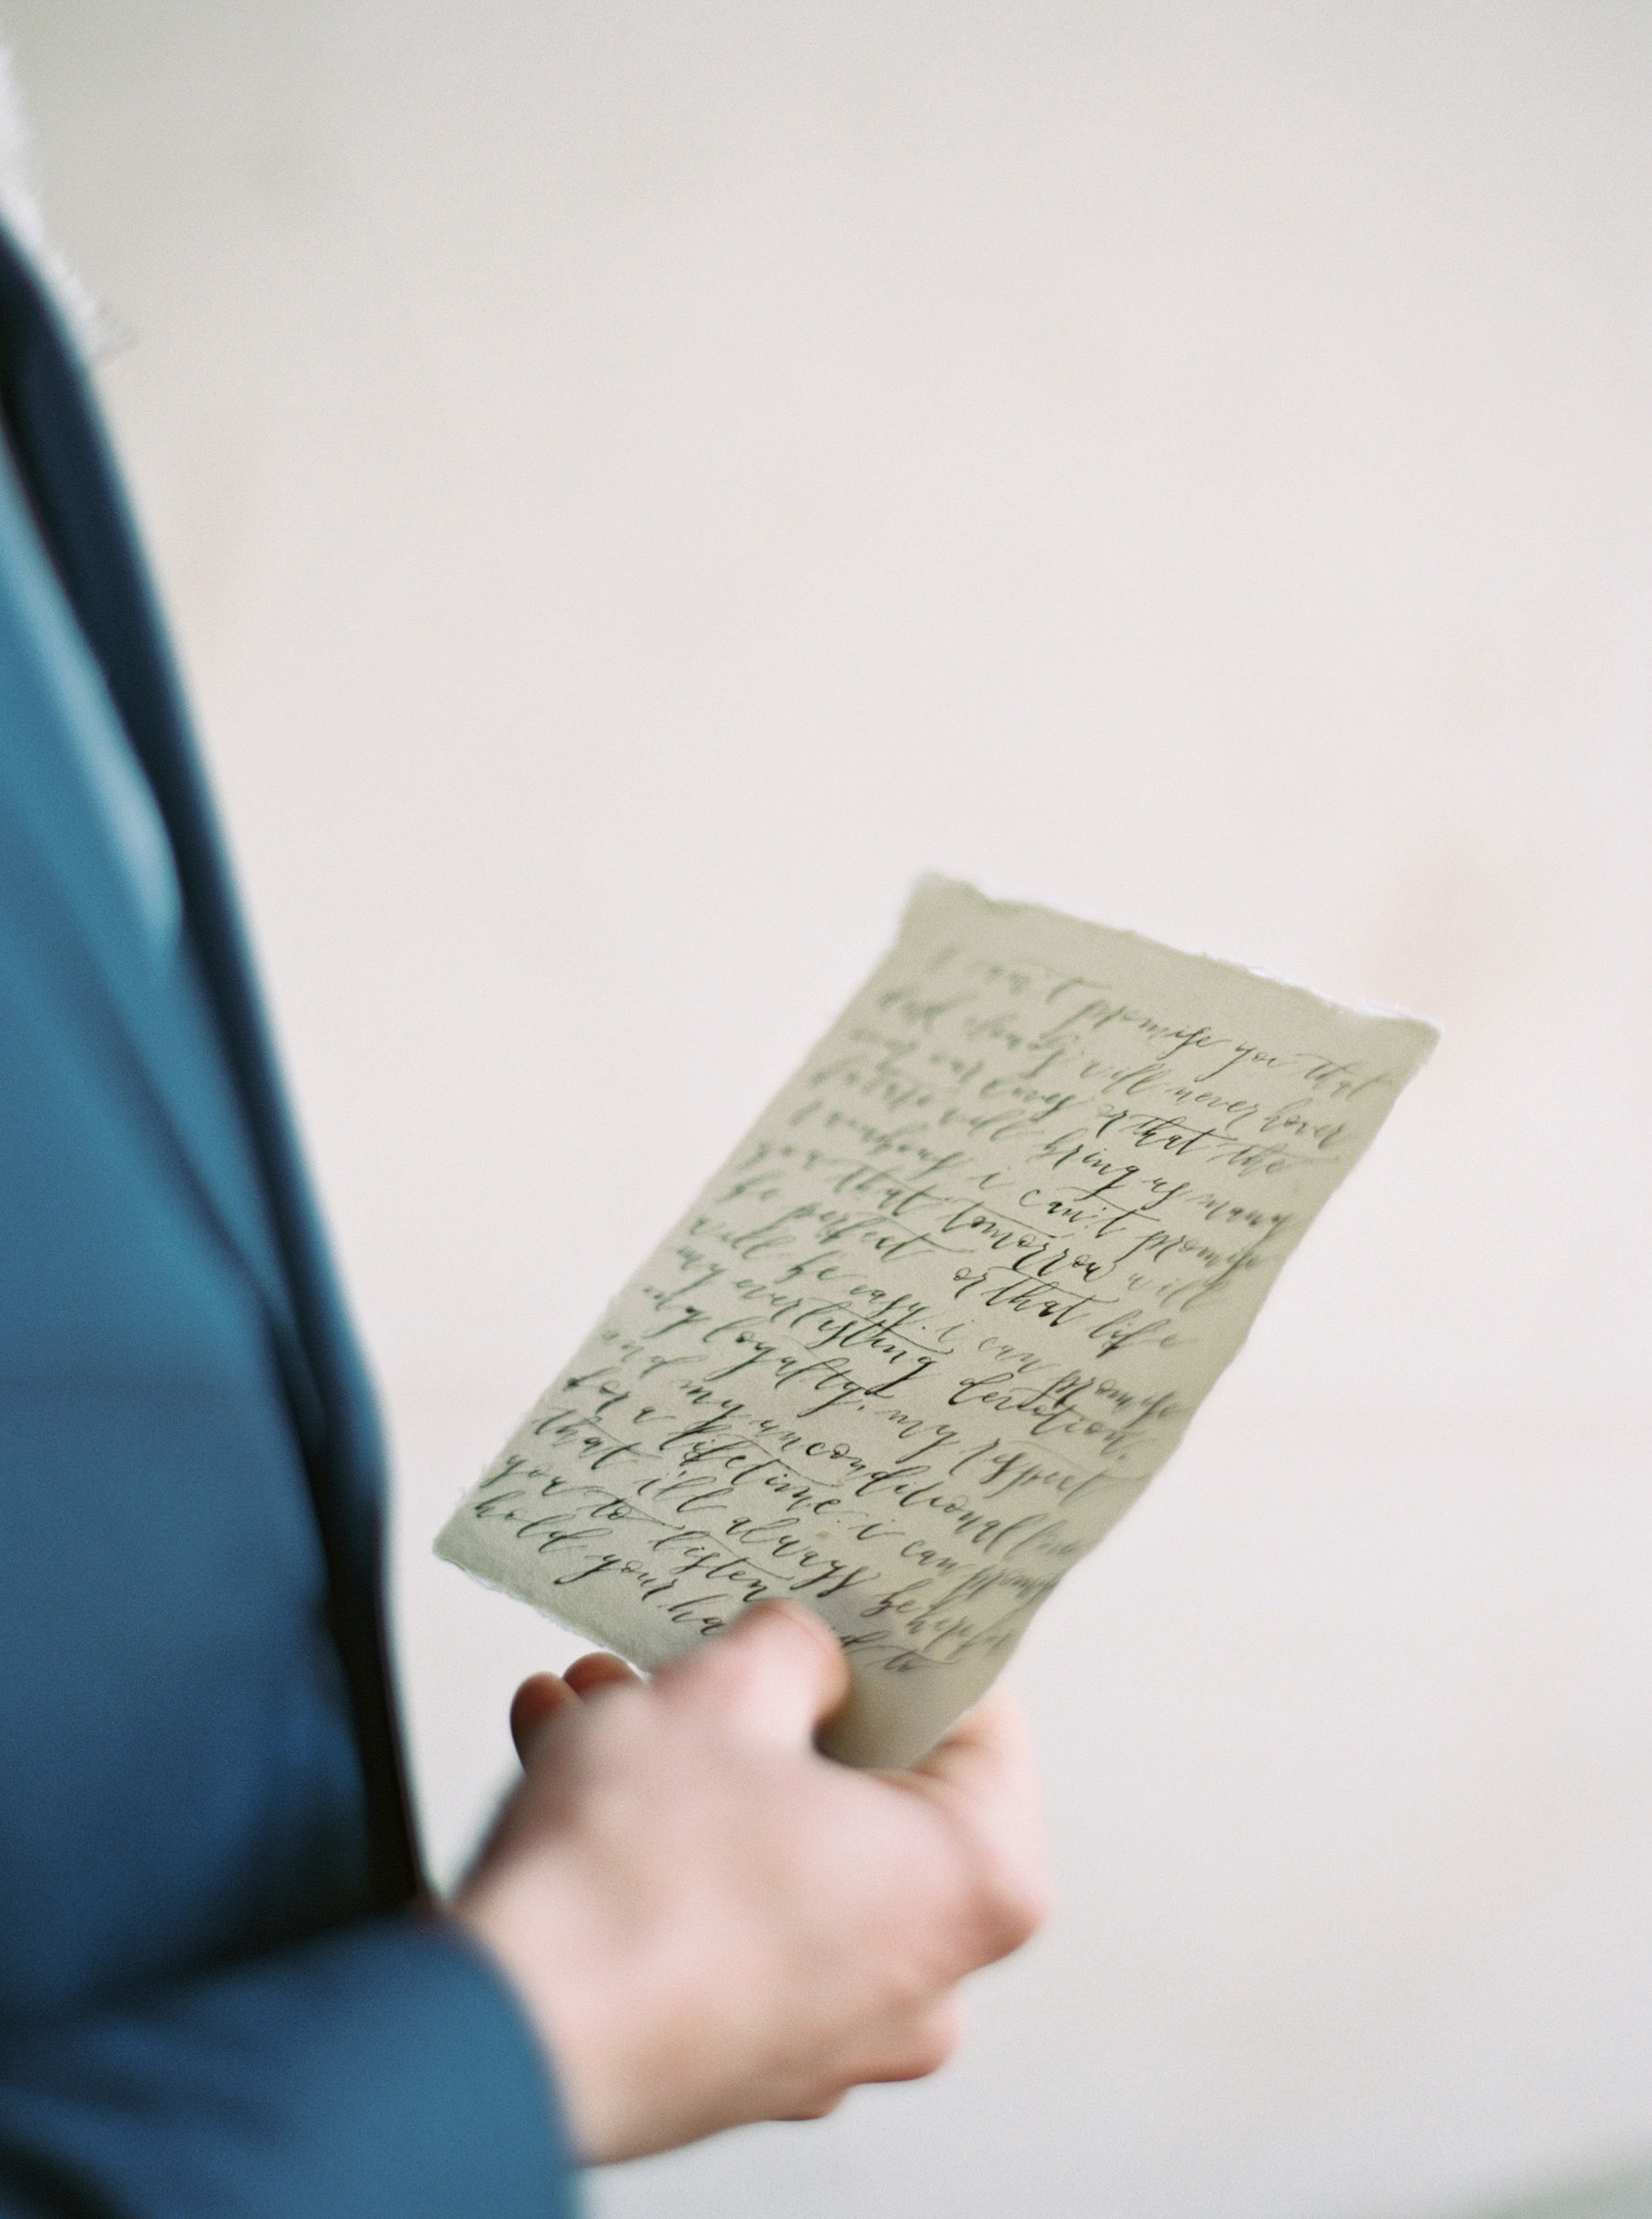 I can't promise you that
dark clouds will never hover
over our lives or that the
future will bring us many
rainbows. i can't promise
you that tomorrow will
be perfect or that life
will be easy. i can promise
my everlasting devotion,
my loyalty, my respect
and my unconditional love
for a lifetime. i can promise
that i'll always be here for
you to listen and to
hold your